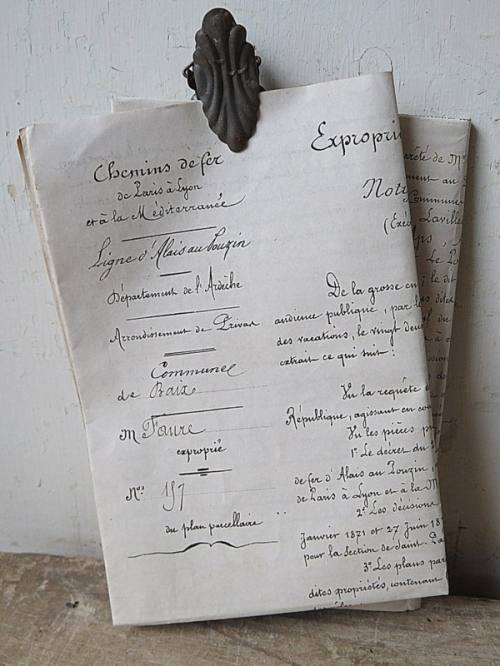 Chemins de fer
de Paris à Lyon
et à la Méditerranée
Ligne d'Alais au Pouzin
Département de l'Ardèche
Arrondissement de Privas
Commune
de Baix
M Faure
exproprié
Nos 157
du plan parcellaire
Expropri
Not
(Ex
De la grosse en
audience publique, par l
des vacations, le vingt deux
extrait ce qui suit :
Vu la requête
République, agissant en
Vu les pièces
1° Le décret du
de fer d'Alais au Pouzin,
de Paris à Lyon et à la M
2° Les décisions
Janvier 1871 et 27 Juin 18
pour la section de Saint-
3° Les plans par
dites propriétés, contenant
rêté de M
ment au
Laville